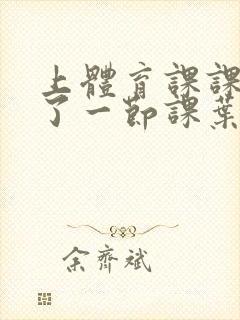 上體育課課
了一節課葉
余齊斌